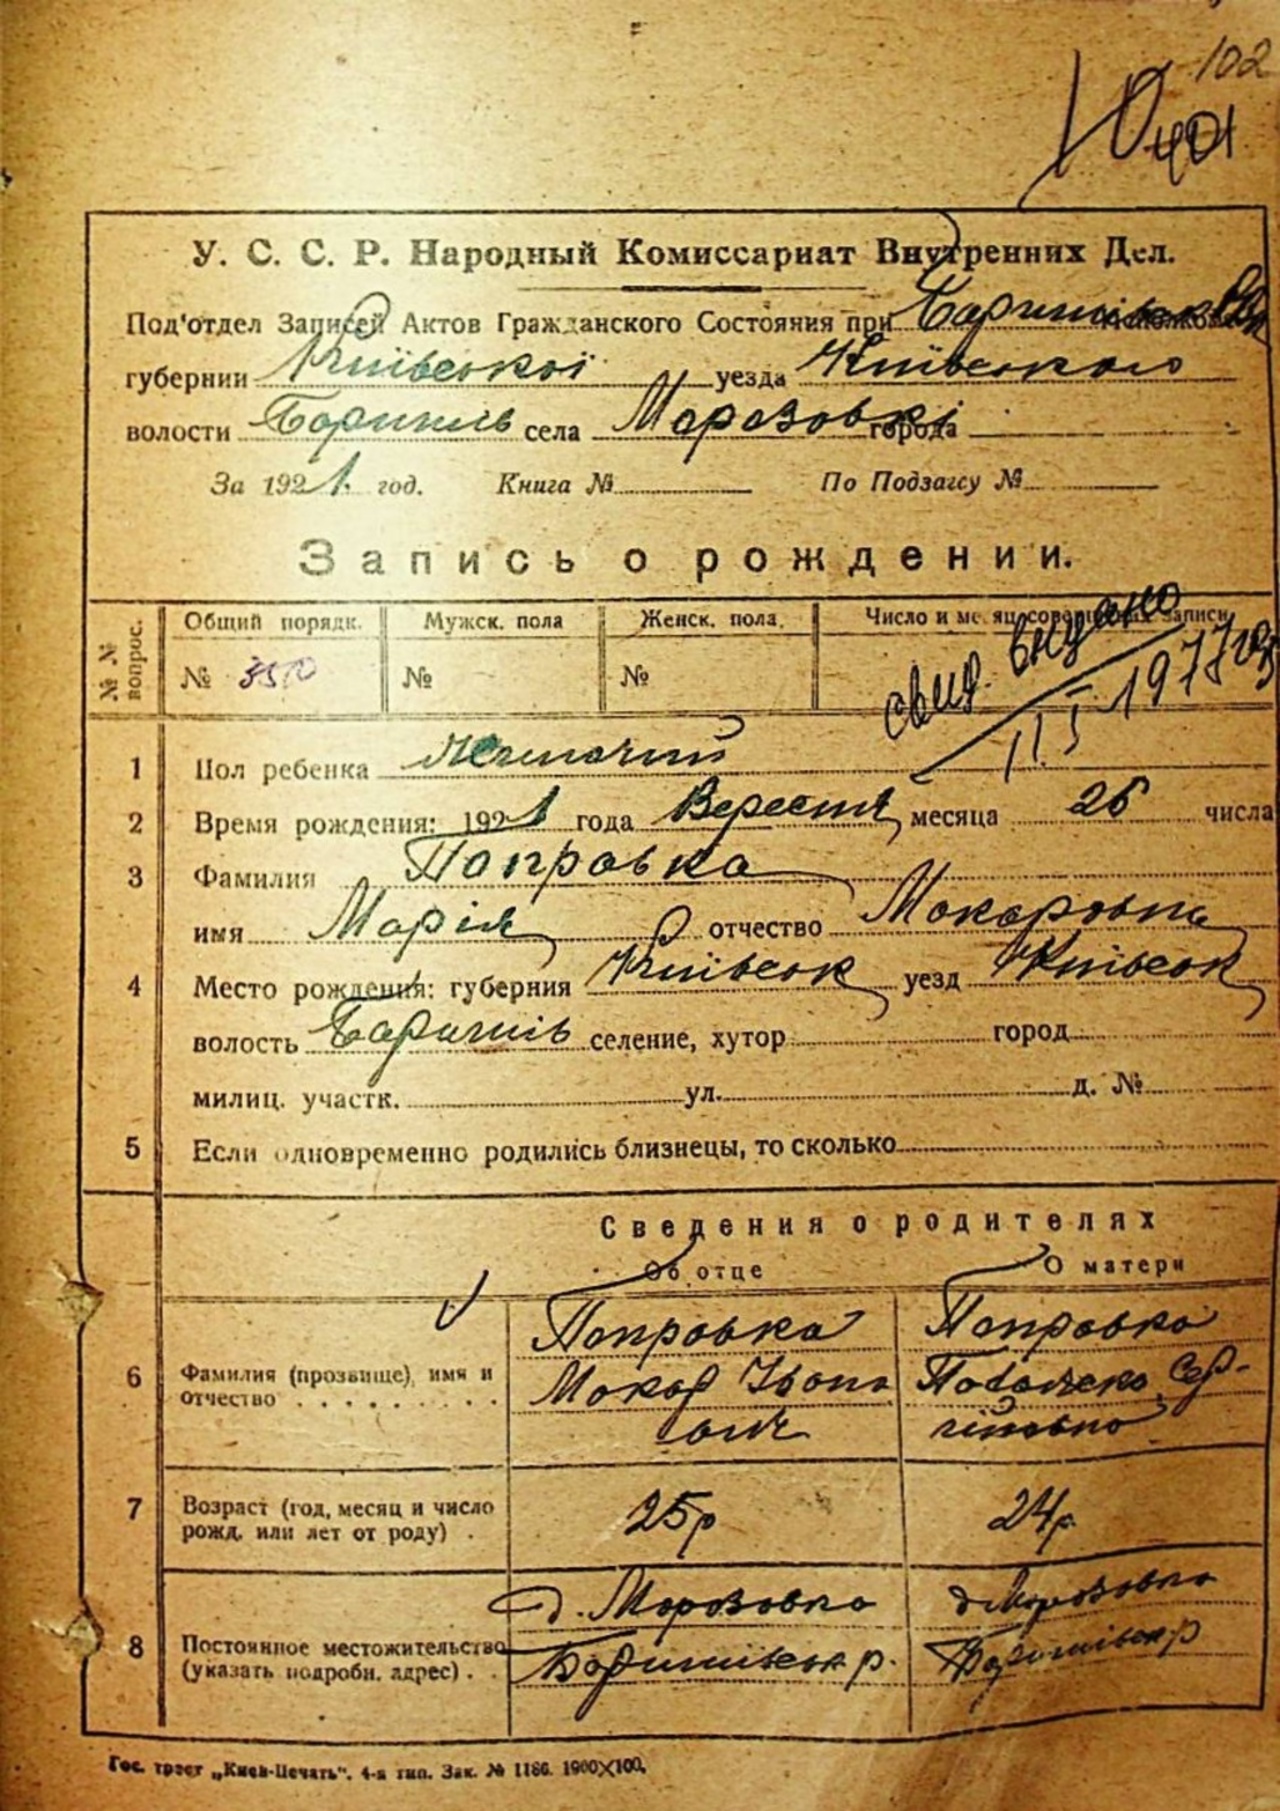 102
401
У. С. С. Р. Народный Комиссариат Внутренних Дел.
Под'отдел Записей Актов Гражданского Состояния при
губернии Київської уезда Київського
волости Бориспіль села Морозовкі города
За 1921 год. Книга № По Подзагсу №
Запись о рождении.
№ № вопрос. Общий порядк. Мужск. пола Женск. пола. Число и месяц совершения записи
№ 3510 № №
свид. видано
11.5 1977
1 Пол ребенка Женочий
2 Время рождения: 1921 года Вересня месяца 26 числа
3 Фамилия Попровка
имя Марія отчество Макаровна
4 Место рождения: губерния Київськ уезд Київськ
волость Бориспіль селение, хутор город
милиц. участк. ул. д. №
5 Если одновременно родились близнецы, то сколько
Сведения о родителях
Об отце О матери
Попровка Попровка
6 Фамилия (прозвище), имя и отчество Макар Івано Сер-
вич гіївна
7 Возраст (год, месяц и число рожд. или лет от роду) 25р 24р.
д. Морозовка д Морозовка
8 Постоянное местожительство (указать подробн. адрес) Бориспільськ р. Бориспільськ р
Гос. трест „Киев-Печать". 4-я тип. Зак. № 1186. 1900×100.